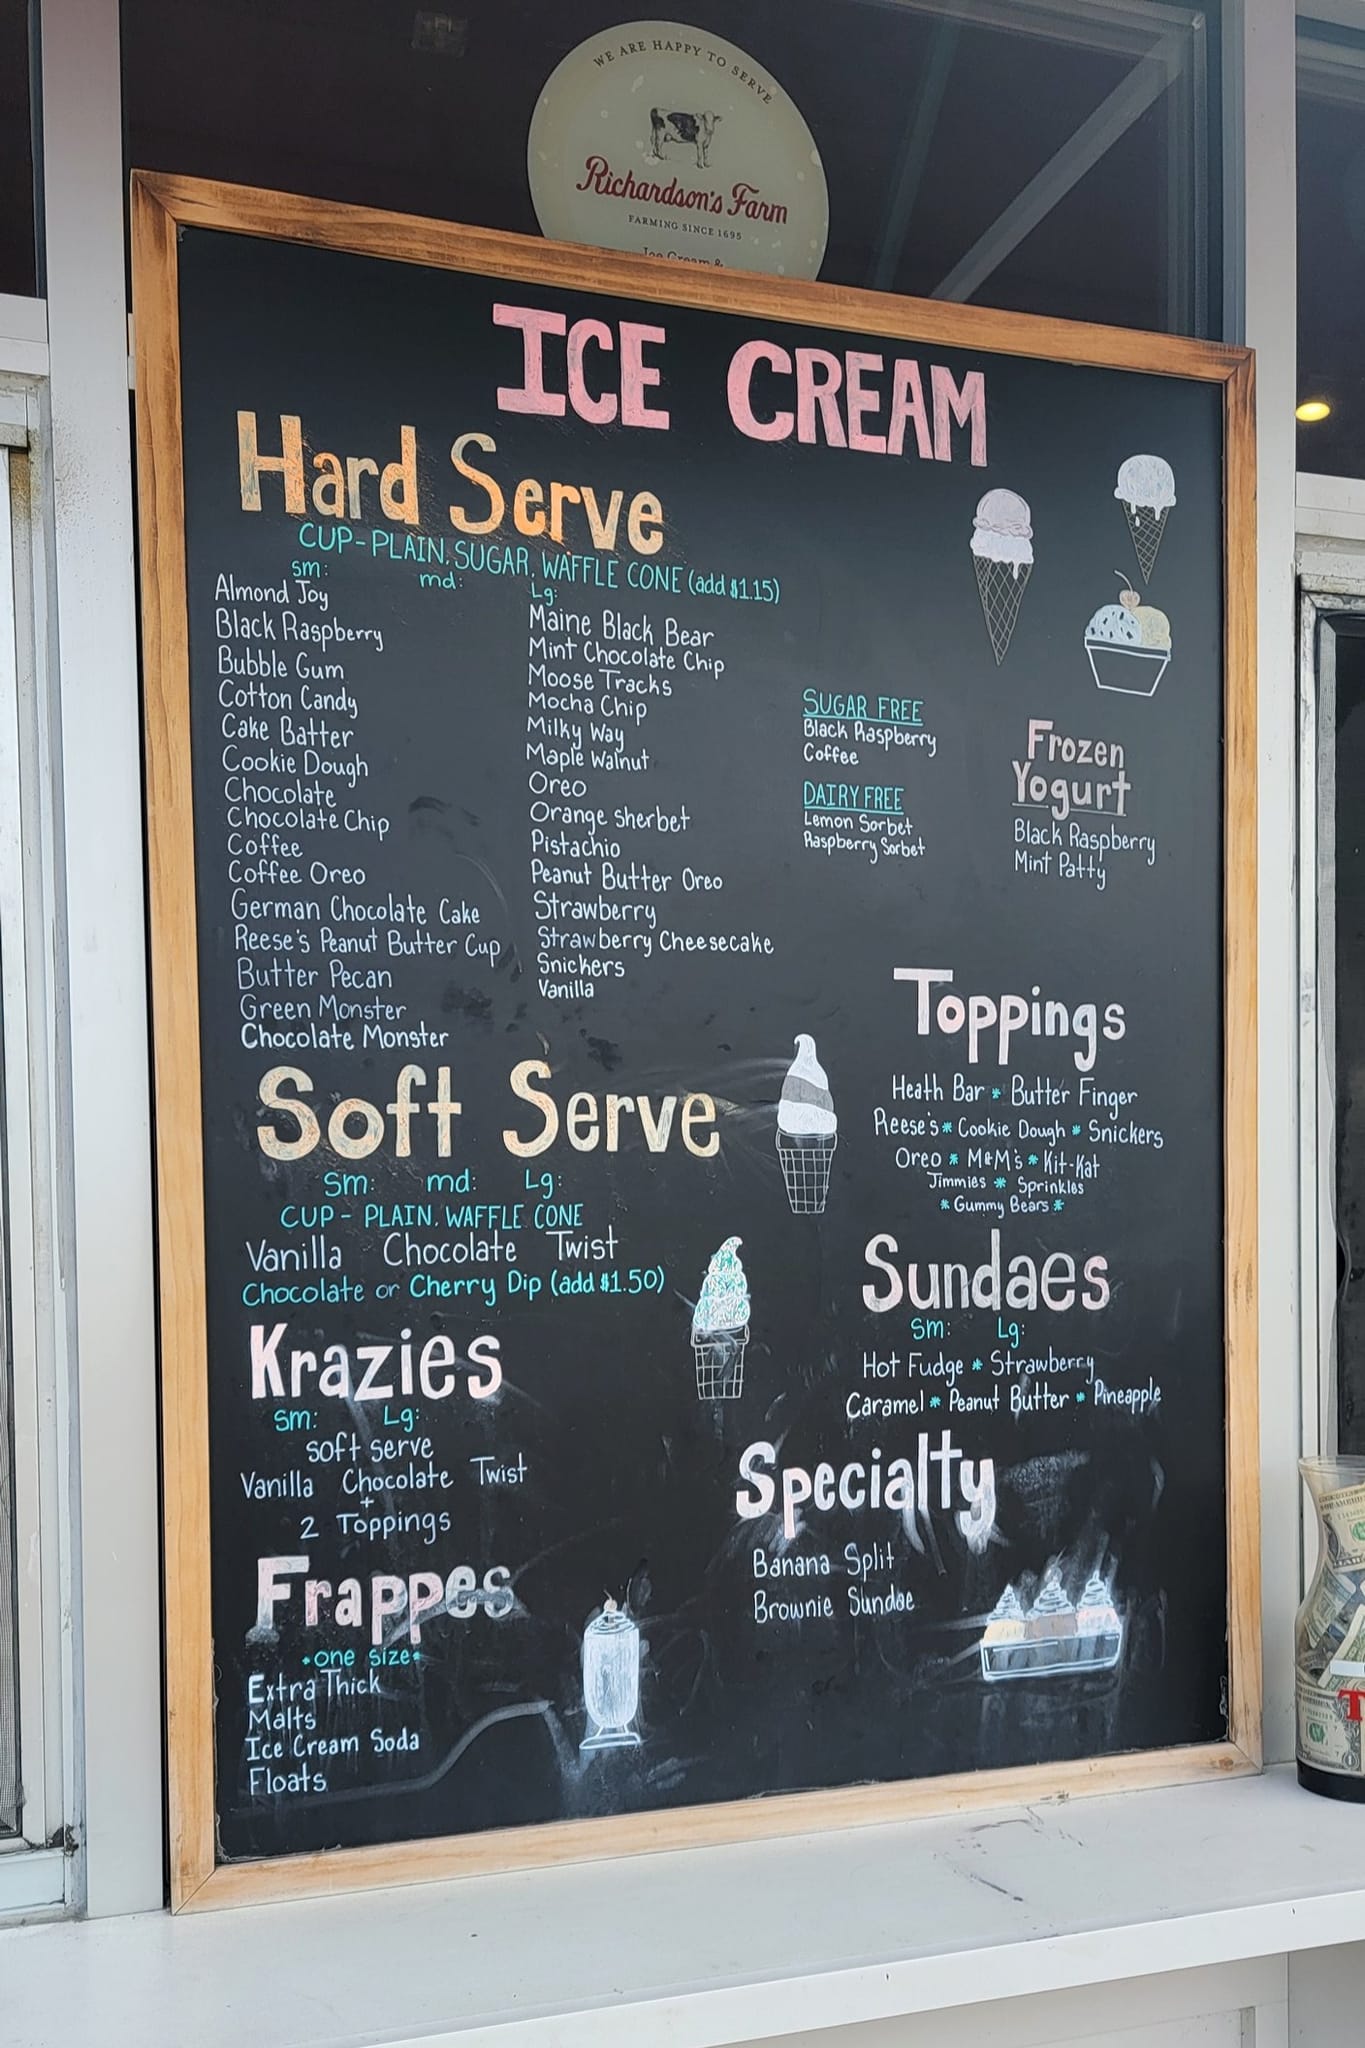 WE ARE HAPPY TO SERVE
Richardson's Farm
FARMING SINCE 1695
Ice Cream &
ICE CREAM
Hard Serve
CUP-PLAIN, SUGAR, WAFFLE CONE (add $1.15)
sm: md: Lg:
Almond Joy
Black Raspberry
Bubble Gum
Cotton Candy
Cake Batter
Cookie Dough
Chocolate
Chocolate Chip
Coffee
Coffee Oreo
German Chocolate Cake
Reese's Peanut Butter Cup
Butter Pecan
Green Monster
Chocolate Monster
Maine Black Bear
Mint Chocolate Chip
Moose Tracks
Mocha Chip
Milky Way
Maple Walnut
Oreo
Orange sherbet
Pistachio
Peanut Butter Oreo
Strawberry
Strawberry Cheesecake
Snickers
Vanilla
SUGAR FREE
Black Raspberry
Coffee
DAIRY FREE
Lemon Sorbet
Raspberry Sorbet
Frozen
Yogurt
Black Raspberry
Mint Patty
Soft Serve
Sm: md: Lg:
CUP - PLAIN, WAFFLE CONE
Vanilla Chocolate Twist
Chocolate or Cherry Dip (add $1.50)
Krazies
Sm: Lg:
soft serve
Vanilla Chocolate Twist
+
2 Toppings
Frappes
•one size•
Extra Thick
Malts
Ice Cream Soda
Floats
Toppings
Heath Bar * Butter Finger
Reese's * Cookie Dough * Snickers
Oreo * M&M's * Kit-Kat
Jimmies * Sprinkles
* Gummy Bears *
Sundaes
Sm: Lg:
Hot Fudge * Strawberry
Caramel * Peanut Butter * Pineapple
Specialty
Banana Split
Brownie Sundae